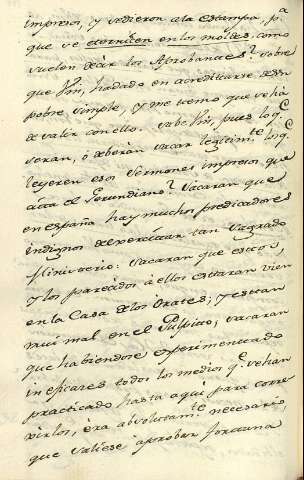 impresos, y se dieron a la estampa, pª
que se eternisen en los moldes, como
suelen decir los Aprobantes? sobre
que Vm, ha dado en acreditarse de un
pobre simple, y me temo que se ha
de salir con ello. Sabe Vm, pues lo q.e
veran, ò deberàn sacar legitim.te los q.e
leyeren esos Sermones impresos, que
cita el Gerundiano? Sacaràn que
en españa hay muchos predicadores
indignos de exercitar tan Sagrado
Ministerio: sacaràn que estos,
y los pareados à ellos estaran bien
en la Casa de los Orates; y estan
mui mal en el Pulpito; sacaràn
que habiendose experimentado
ineficaces todos los medios q.e se han
practicado hasta aqui para corre
virlos, era absolutam.te necesario,
que saliese à probar fortuna